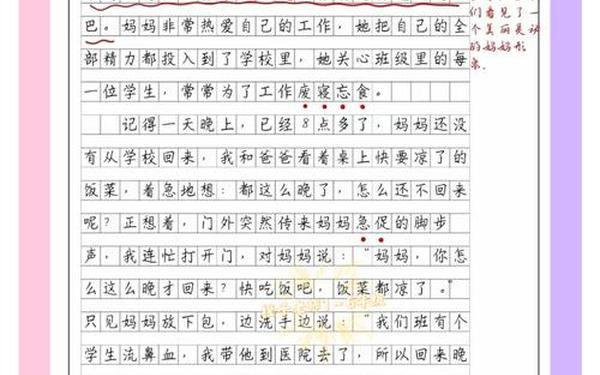 巴。妈妈非常热爱自己的工作，她把自己的全
部精力都投入到了学校里，她关心班级里的每
一位学生，常常为了工作废寝忘食。
记得一天晚上，已经8点多了，妈妈还没
有从学校回来，我和爸爸看着桌上快要凉了的
饭菜，着急地想：都这么晚了，怎么还不回来
呢？正想着，门外突然传来妈妈急促的脚步
声，我连忙打开门，对妈妈说：“妈妈，你怎
么这么晚才回来？快吃饭吧，饭菜都凉了。”
只见妈妈放下包，边洗手边说：“我们班有个
学生流鼻血，我带他到医院去了，所以回来晚
们看见了一
个美丽灵动
的妈妈形
象.